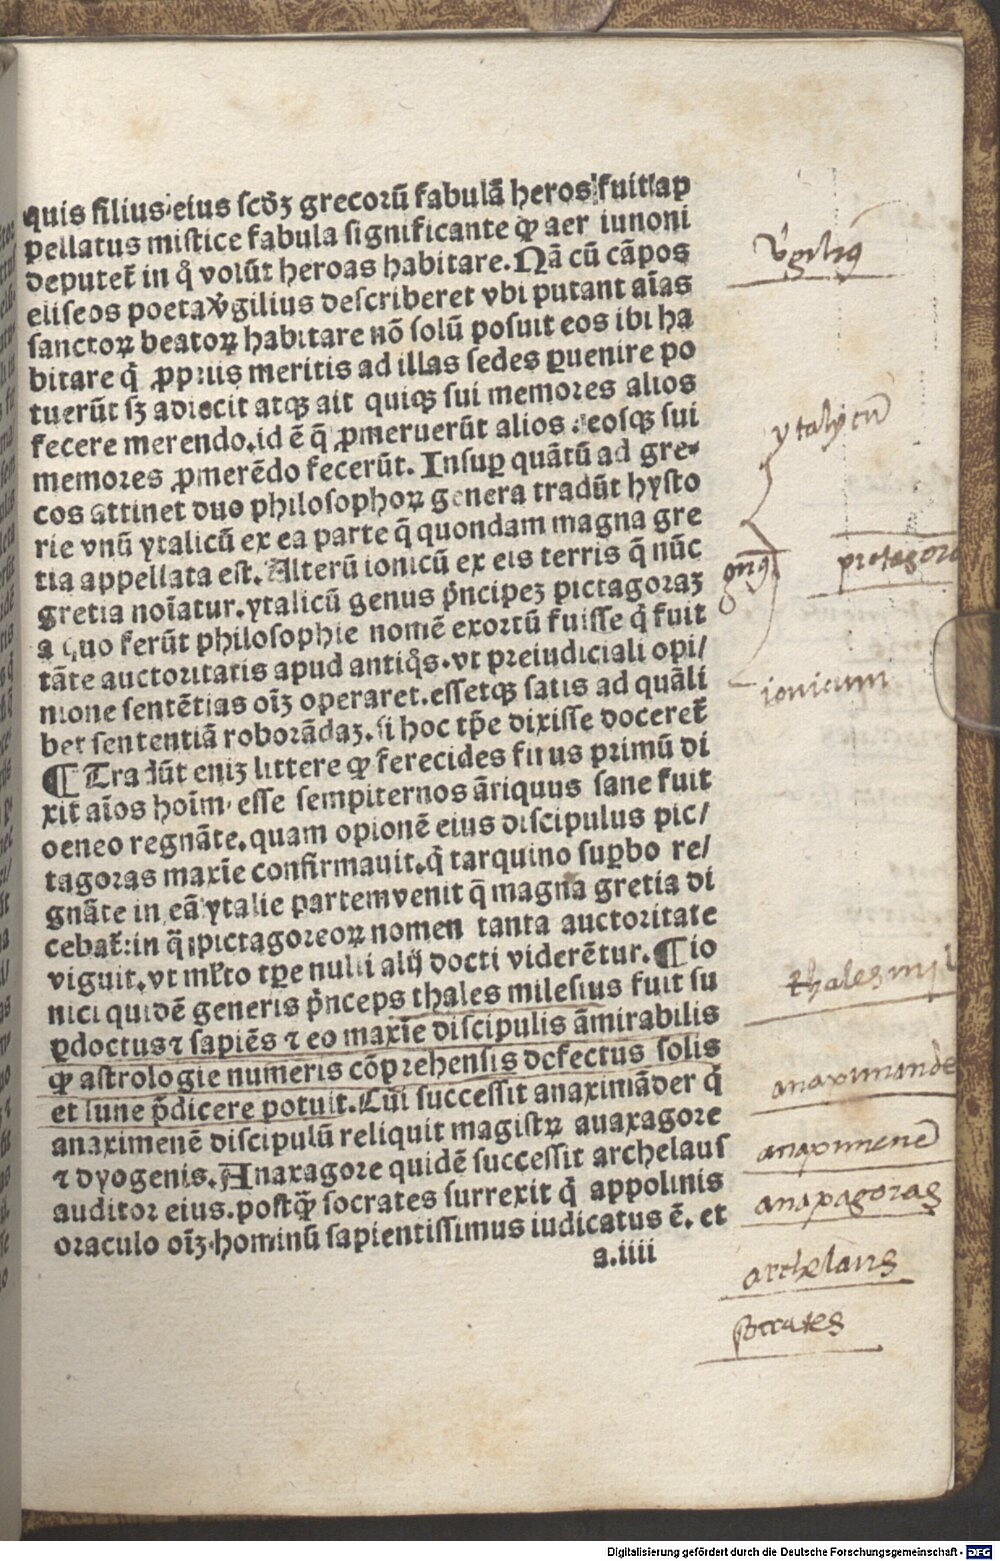 quis filius eius scōꝫ grecorū fabulā heros fuit ap
pellatus mistice fabula significante ꝙ aer iunoni
deputet̄ in q̊ volūt heroas habitare. Nā cū cāpos
eliseos poeta v̓gilius describeret vbi putant aīas
sanctoꝝ beatoꝝ habitare nō solū posuit eos ibi ha
bitare q̇ ꝓpriis meritis ad illas sedes ꝑuenire po
tuerūt sꝫ adiecit atqꝫ ait quiqꝫ sui memores alios
fecere merendo. id ē q̄ ꝓmeruerūt alios eosqꝫ sui
memores ꝓmerēdo fecerūt. Insuꝑ quātū ad gre⸗
cos attinet duo philosophoꝝ genera tradūt hysto
rie vnū ytalicū ex ea parte q̄ quondam magna gre
tia appellata est. Alterū ionicū ex eis terris q̄ nūc
gretia noīatur. ytalicū genus p̓ncipeꝫ pictagoraꝫ
a quo ferūt philosophie nomē exortū fuisse q̇ fuit
tāte auctoritatis apud antiq̊s. vt preiudiciali opi/
nione sentētias oīꝫ operaret. essetqꝫ satis ad quāli
bet sententiā roborādaꝫ. si hoc tp̄e dixisse doceret̄
¶ Tradūt eniꝫ littere ꝙ ferecides sirus primū di
xit aīos hoīm esse sempiternos āriquus sane fuit
oeneo regnāte. quam opionē eius discipulus pic/
tagoras maxīe confirmauit. q̇ tarquino suꝑbo re/
gnāte in eā ytalie partem venit q̄ magna gretia di
cebat̄: in q̄ pictagoreoꝝ nomen tanta auctoritate
viguit. vt ml̓to tꝑe nulli alij docti viderētur. ¶ io
nici quidē generis p̓nceps thales milesius fuit su
ꝑdoctus ⁊ sapiēs ⁊ eo maxīe discipulis āmirabilis
ꝙ astrologie numeris cōprehensis defectus solis
et lune p̄dicere potuit. Cui successit anaximāder q̇
anaximenē discipulū reliquit magistꝝ auaxagore
⁊ dyogenis. Anaxagore quidē successit archelaus
auditor eius. postqꝫ socrates surrexit q̇ appolinis
oraculo oīꝫ hominū sapientissimus iudicatus ē. et
a.iiii
v̓gilꝰ
ytalycū
gnꝰ
protagora
ionicum
thales myl
anaximande
anaximenē
anaxagoras
archelaus
socrates
Digitalisierung gefördert durch die Deutsche Forschungsgemeinschaft - DFG